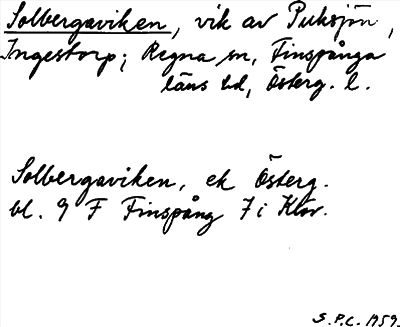 Solbergaviken, vik av Puksjön,
Ingestorp; Regna sn, Finspånga
läns hd, Österg. l.
Solbergaviken, ek Österg.
bl. 9 F Finspång 7 i Klov.
S.P.C. 1959.